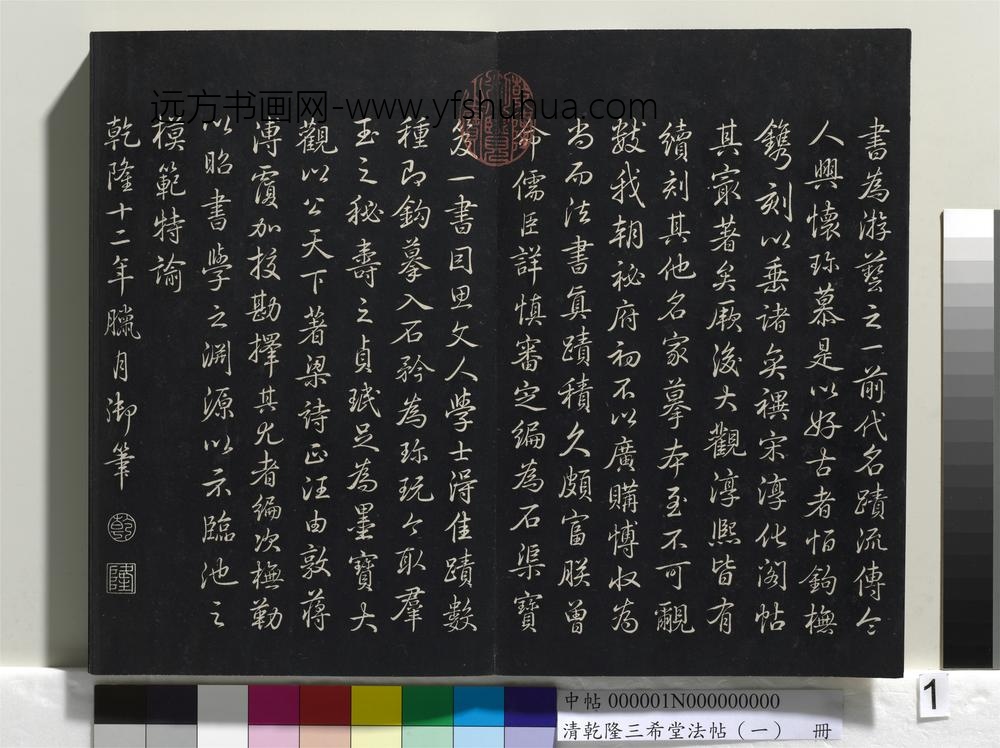 書為游藝之一前代名蹟流傳令
人興懷珎慕是以好古者恒鉤橅
鐫刻以垂諸奕禩宋淳化閣帖
其㝡著矣厥後大觀淳熙皆有
續刻其他名家摹本至不可覼
數我朝祕府初不以廣購博收為
尚而法書真蹟積久頗富朕曾
命儒臣詳慎審定編為石渠寶
笈一書因思文人學士得佳蹟數
種即鈎摹入石矜為珎玩今取羣
玉之秘壽之貞珉足為墨寶大
觀以公天下著梁詩正汪由敦蔣
溥覆加挍勘擇其尤者編次橅勒
以昭書學之淵源以示臨池之
模範特諭
乾隆十二年臘月御筆
乾
隆
远方书画网-www.yfshuhua.com
中帖 000001N000000000
清乾隆三希堂法帖（一） 冊
1